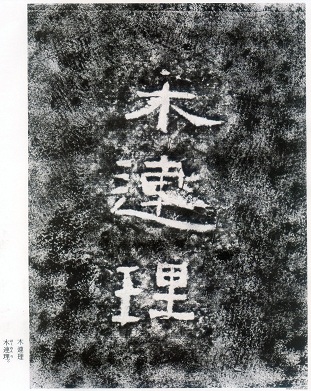 木連理
木連理
木連理。